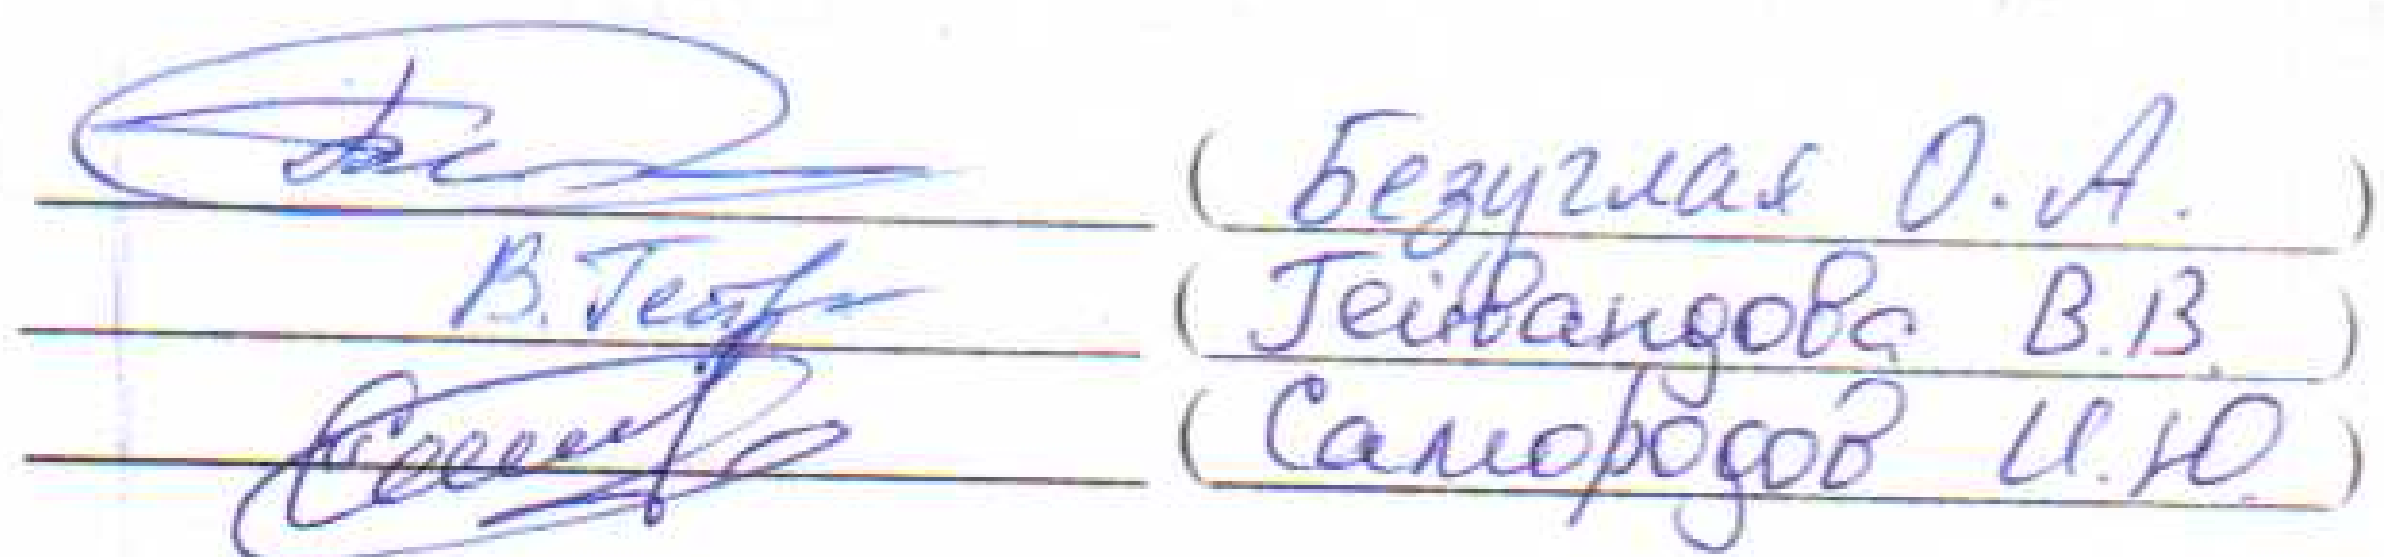 (Безуглая О.А.)
В. Гейв (Гейвандова В.В.)
(Самородов И.Ю.)